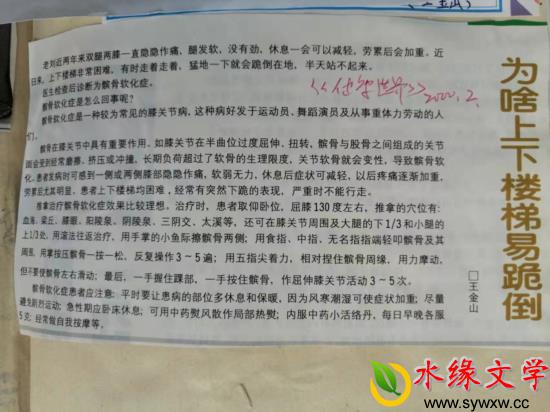 为啥上下楼梯易跪倒
□王金山
老刘近两年来双腿两膝一直隐隐作痛，腿发软，没有劲，休息一会可以减轻，劳累后会加重。近
日来，上下楼梯非常困难，有时走着走着，猛地一下就会跪倒在地，半天站不起来。
医生检查后诊断为髌骨软化症。
髌骨软化症是怎么回事呢？
髌骨软化症是一种较为常见的膝关节病，这种病好发于运动员、舞蹈演员及从事重体力劳动的人
们。
髌骨在膝关节中具有重要作用。如膝关节在半曲位过度屈伸、扭转，髌骨与股骨之间组成的关节
面会受到经常磨擦、挤压或冲撞。长期负荷超过了软骨的生理限度，关节软骨就会变性，导致髌骨软
化。患者发病时可感到一侧或两侧膝部隐隐作痛，软弱无力，休息后症状可减轻，以后疼痛逐渐加重，
劳累后尤其明显，患者上下楼梯均困难，经常有突然下跪的表现，严重时不能行走。
推拿治疗髌骨软化症效果比较理想。治疗时，患者取仰卧位，屈膝130度左右，推拿的穴位有：
血海、梁丘、膝眼、阳陵泉、阴陵泉、三阴交、太溪等，还可在膝关节周围及大腿的下1/3和小腿的
上1/3处，用滚法往返治疗，用手掌的小鱼际擦髌骨两侧；用食指、中指、无名指指端轻叩髌骨及其
周围，用掌按压髌骨一按一松，反复操作3～5遍；用五指尖着力，相对捏住髌骨周缘，用力摩动，
但不要使髌骨左右滑动；最后，一手握住踝部，一手按住髌骨，作屈伸膝关节活动3～5次。
髌骨软化症患者应注意：平时要让患病的部位多休息和保暖，因为风寒潮湿可使症状加重；尽量
避免剧烈运动；急性期应卧床休息；可用中药熨风散作局部热熨；内服中药小活络丹，每日早晚各服
5克；经常做自我按摩等。
2022.2.
水缘文学
www.sywxw.cc